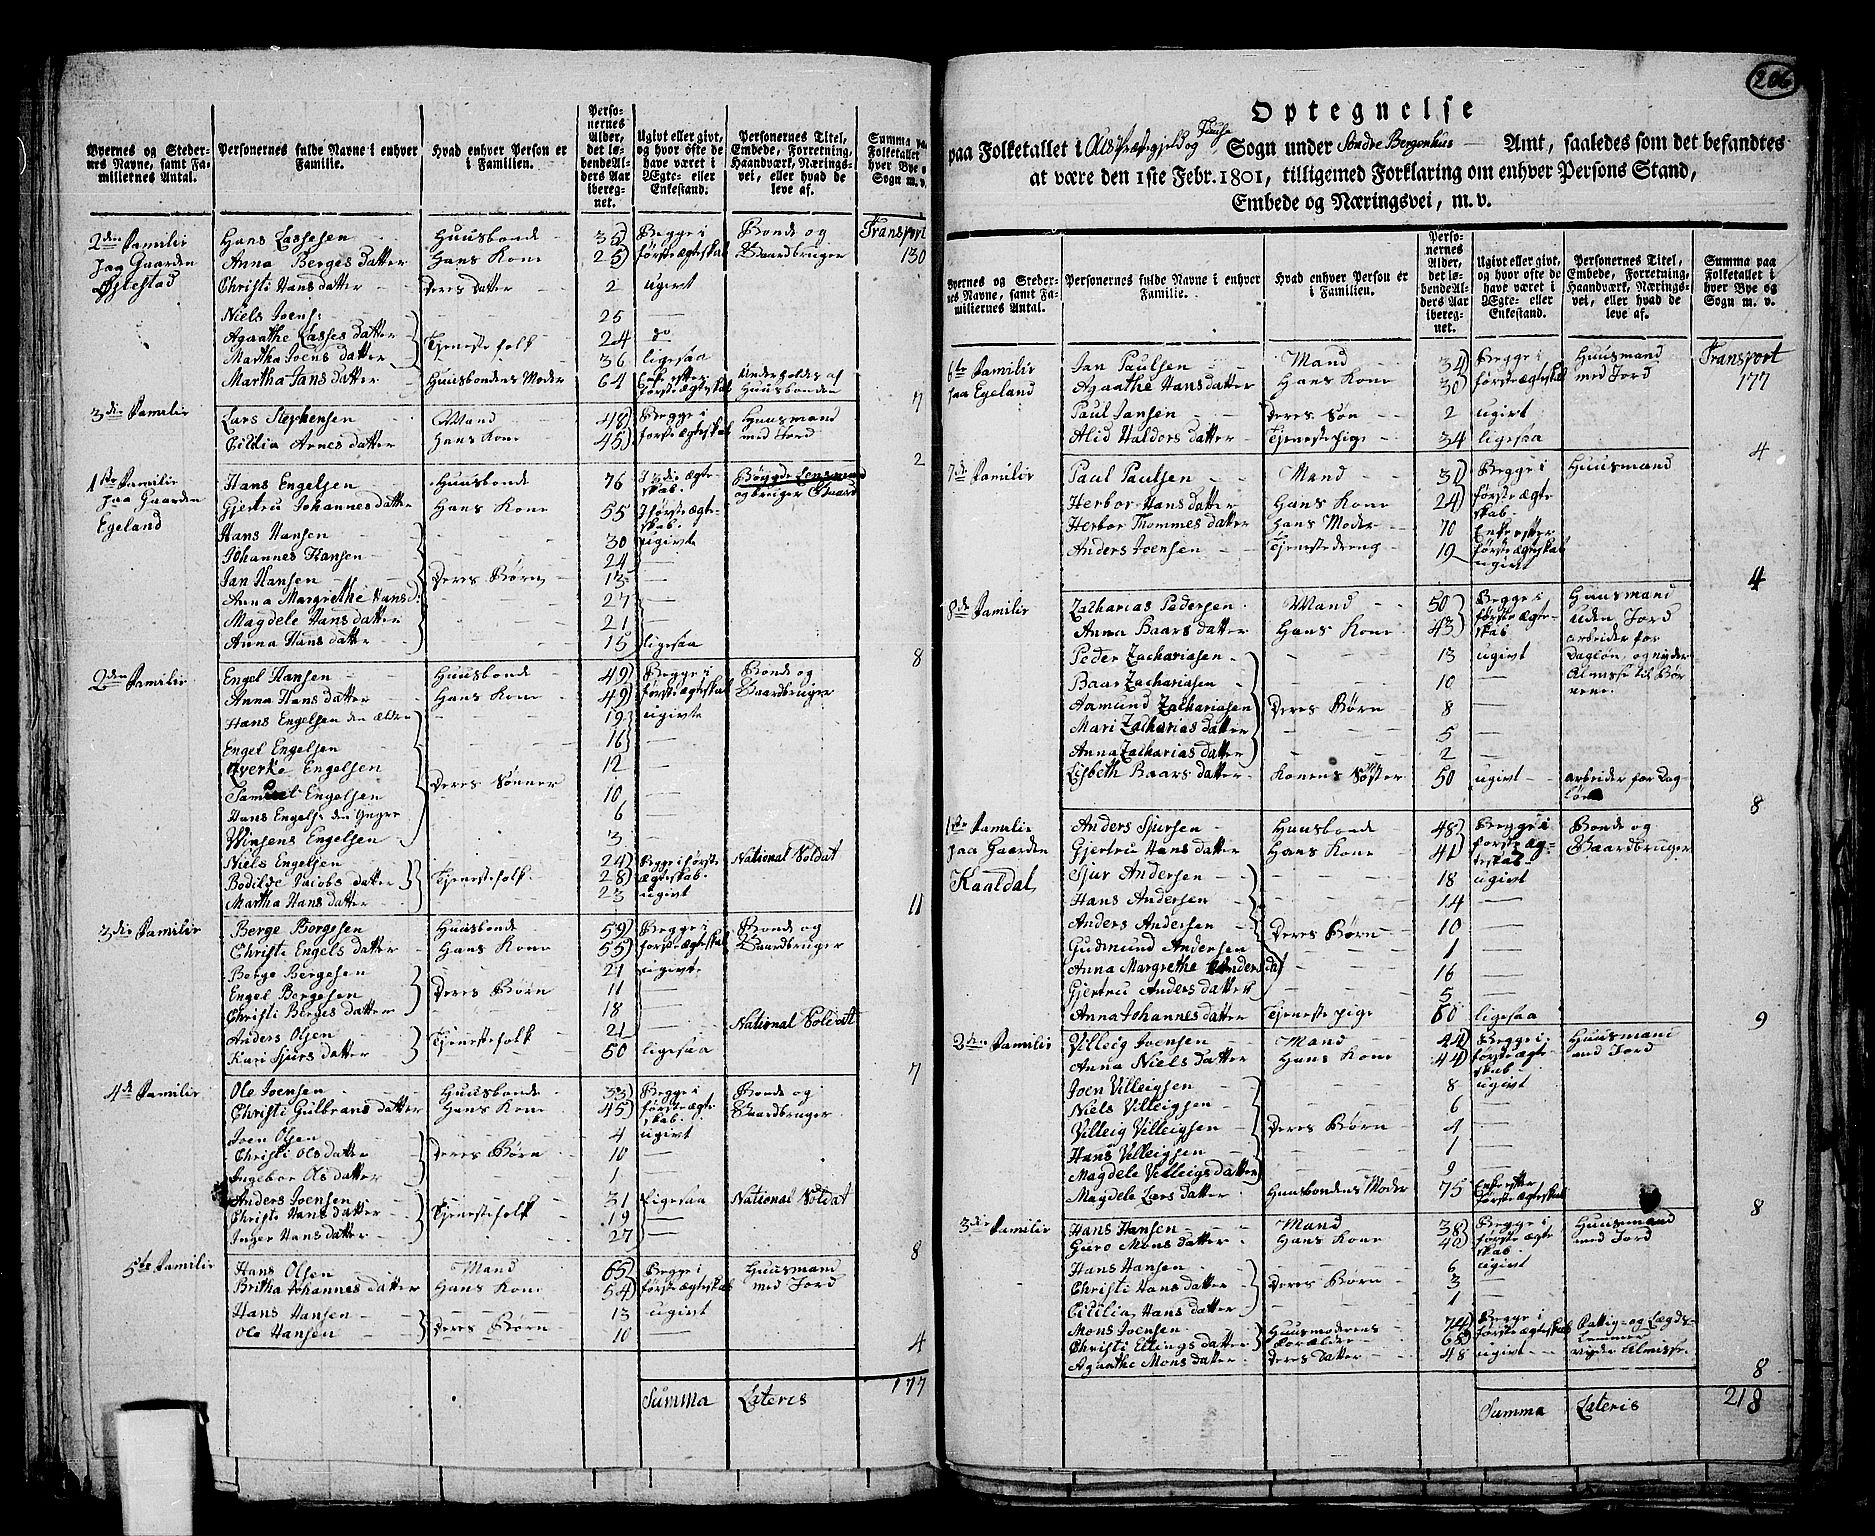 Byernes og Steder-
nes Navne, samt Fa-
miliernes Antal.
Personernes fulde Navne i enhver
Familie.
Hvad enhver Person er
i Familien.
Perso-
nernes
Alder,
det lø-
bende Al-
ders Aar
iberegn-
net.
Ugivt eller givt,
og hvor ofte de
have været i
Ægte- eller
Enkestand.
Personernes Titel,
Embede, Forretning,
Haandværk, Nærings-
vei, eller hvad de
leve af.
Summa paa
Folketallet
hver Bye o
Sogn m. v.
2den Familie Hans Lassesen Huusbonde 35 Begge i Bonde og Transport
paa Gaarden Anna Berges datter Hans Kone 25 første ægteskab Gaardbruger 130
Østestad Christi Hansdatter Deres datter 2 ugivt
Niels Joens: 25 —
Agaathe Lasses datter Tjenestefolk 24 do
Martha Joens datter 36 ligesaa
Martha Jans datter Huusbondens Moder 64 Enke efter første ægteskab Underholdes af Huusbonden 7
3die Familie Lars Stephensen Mand 48 Begge i Huusmand
Cicilia Arnes datter Hans Kone 45 første ægteskab med Jord 2
1ste Familie Hans Engelsen Huusbonde 76 I 3die ægte- skab. Bøygde Lensmand
paa Gaarden Gjertru Johannes datter Hans Kone 55 I første ægte- skab. og bruger Gaard
Egeland Hans Hansen 30 ugivte
Johannes Hansen 24 —
Jan Hansen Deres Børn 13 —
Anna Margrethe Hans d: 27 —
Magdele Hans datter 21 —
Anna Hans datter 15 ligesaa 8
2den Familie Engel Hansen Huusbonde 49 Begge i Bonde og
Anna Hans datter Hans Kone 49 første ægteskab Gaardbruger
Hans Engelsen den ældre 19 ugivte
Engel Engelsen 16 —
Engelsen 12 —
Samuel Engelsen Deres Sønner 10 —
Hans Engels: den Yngre 6 —
Winsens Engelsen 3 —
Niels Engelsen 24 Begge i første National Soldat
Bodilde Jacobs datter Tjenestefolk 28 ægteskab.
Martha Hans datter 23 ugivt 11
3die Familie Berge Borgesen Huusbonde 59 Begge i Bonde og
Christi Engels datter Hans Kone 55 første ægteskab Gaardbruger
Berge Bergesen 21 ugivt
Engel Bergesen Deres Børn 11 —
Christi Berges datter 18 —
Anders Olsen Tjenestefolk 21 — National Soldat
Kari Sjurs datter 50 ligesaa 7
4de Familie Ole Joensen Huusbonde 33 Begge i Bonde og
Christi Gulbrans datter Hans Kone 45 første ægte skab. Gaardbruger
Joen Olsen 4 ugivt
Christi Ols datter Deres Børn 10 —
Ingebor Ols datter 1 —
Anders Joensen 31 Ligesaa National Soldat
Christi Hans datter Tjenestefolk 19 —
Inger Hans datter 27 — 8
5te Familie Hans Olsen Mand 65 Begge i Huusmand
Britha Johannes datter Hans Kone 54 første ægteskab med Jord
Hans Hansen Deres Børn 13 ugivt
Ole Hansen 10 — 4
Summa Lateris 177
206
Optegnelse
paa Folketallet i Præstegjeld og Sogn under Søndre Bergenhus Amt, saaledes som det befandtes
at være den 1ste Febr. 1801, tilligemed Forklaring om enhver Persons Stand,
Embede og Næringsvei, m. v.
Byernes og Steder-
nes Navne, samt Fa-
miliernes Antal.
Personernes fulde Navne i enhver
Familie.
Hvad enhver Person er
i Familien.
Perso-
nernes
Alder,
det lø-
bende Al-
ders Aar
iberegn-
net.
Ugivt eller givt,
og hvor ofte de
have været i
Ægte- eller
Enkestand.
Personernes Titel,
Embede, Forretning,
Haandværk, Nærings-
vei, eller hvad de
leve af.
Summa paa
Folketallet i
hver Bye og
Sogn m. v.
6te Familie Jan Paulsen Mand 34 Begge i Huusmand Transport
paa Egeland Agaathe Hans datter Hans Kone 30 første ægteskab med Jord 177
Paul Jansen Deres Søn 2 ugivt
Alid Haldors datter Tjenestepige 34 ligesaa 4
7de Familie Paul Paulsen Mand 31 Begge i Huusmand
Herbor Hans datter Hans Kone 24 første ægte skab.
Herbor Thommes datter Hans Moder 70 Enke efter første ægteskab
Anders Joensen Tjenestedreng 19 ugivt 4
8de Familie Zacharias Pedersen Mand 50 Begge i Huusmand
Anna Baars datter Hans Kone 43 første ægte- skab uden Jord arbeider for
Peder Zachariasen 13 ugivt Dagløn, og nyder
Baar Zachariasen 10 — Almisse til Bør nene.
Aamund Zachariasen Deres Børn 8 —
Mari Zacharias datter 5 —
Anna Zacharias datter 2 —
Lisbeth Baars datter Konens Søster 50 ugivt arbeider for Dag løn 8
1ste Familie Anders Sjursen Huusbonde 48 Begge i Bonde og
paa Gaarden Gjertru Hans datter Hans Kone 41 første æg- teskab Gaardbruger
Kaaldal Sjur Andersen 18 ugivt
Hans Andersen 14 —
Anders Andersen Deres Børn 10 —
Gudmund Andersen 1 —
Anna Margrethe Anders da 16 —
Gjertru Anders datter 5 —
Anna Johannes datter Tjeneste pige 60 ligesaa 9
2den Familie Villeig Joensen Mand 44 Begge i Huusmand
Anna Niels datter Hans Kone 44 første ægte skab. med Jord
Joen Villeigsen 8 ugivt
Niels Villeigsen 6 —
Villeig Villeigsen Deres Børn 4 —
Hans Villeigsen 1 —
Magdele Villeigs datter 9 —
Magdele Lars datter Huusbondens Moder 75 Enke efter første ægteskab 8
3die Familie Hans Hansen Mand 38 Begge i Huusmand
Guro Mons datter Hans Kone 40 første ægte skab. med Jord
Hans Hansen 6 ugivt
Christi Hans datter Deres Børn 3 —
Cicilia Hans datter 1 —
Mons Joensen Huusmoderens 74 Begge i Fattig- og Lægds-
Christi Ellings datter Forældre 68 første ægteskab Lemmer
Agaathe Mons datter Deres datter 48 ugivt nyder Almisse. 8
Summa Lateris 218